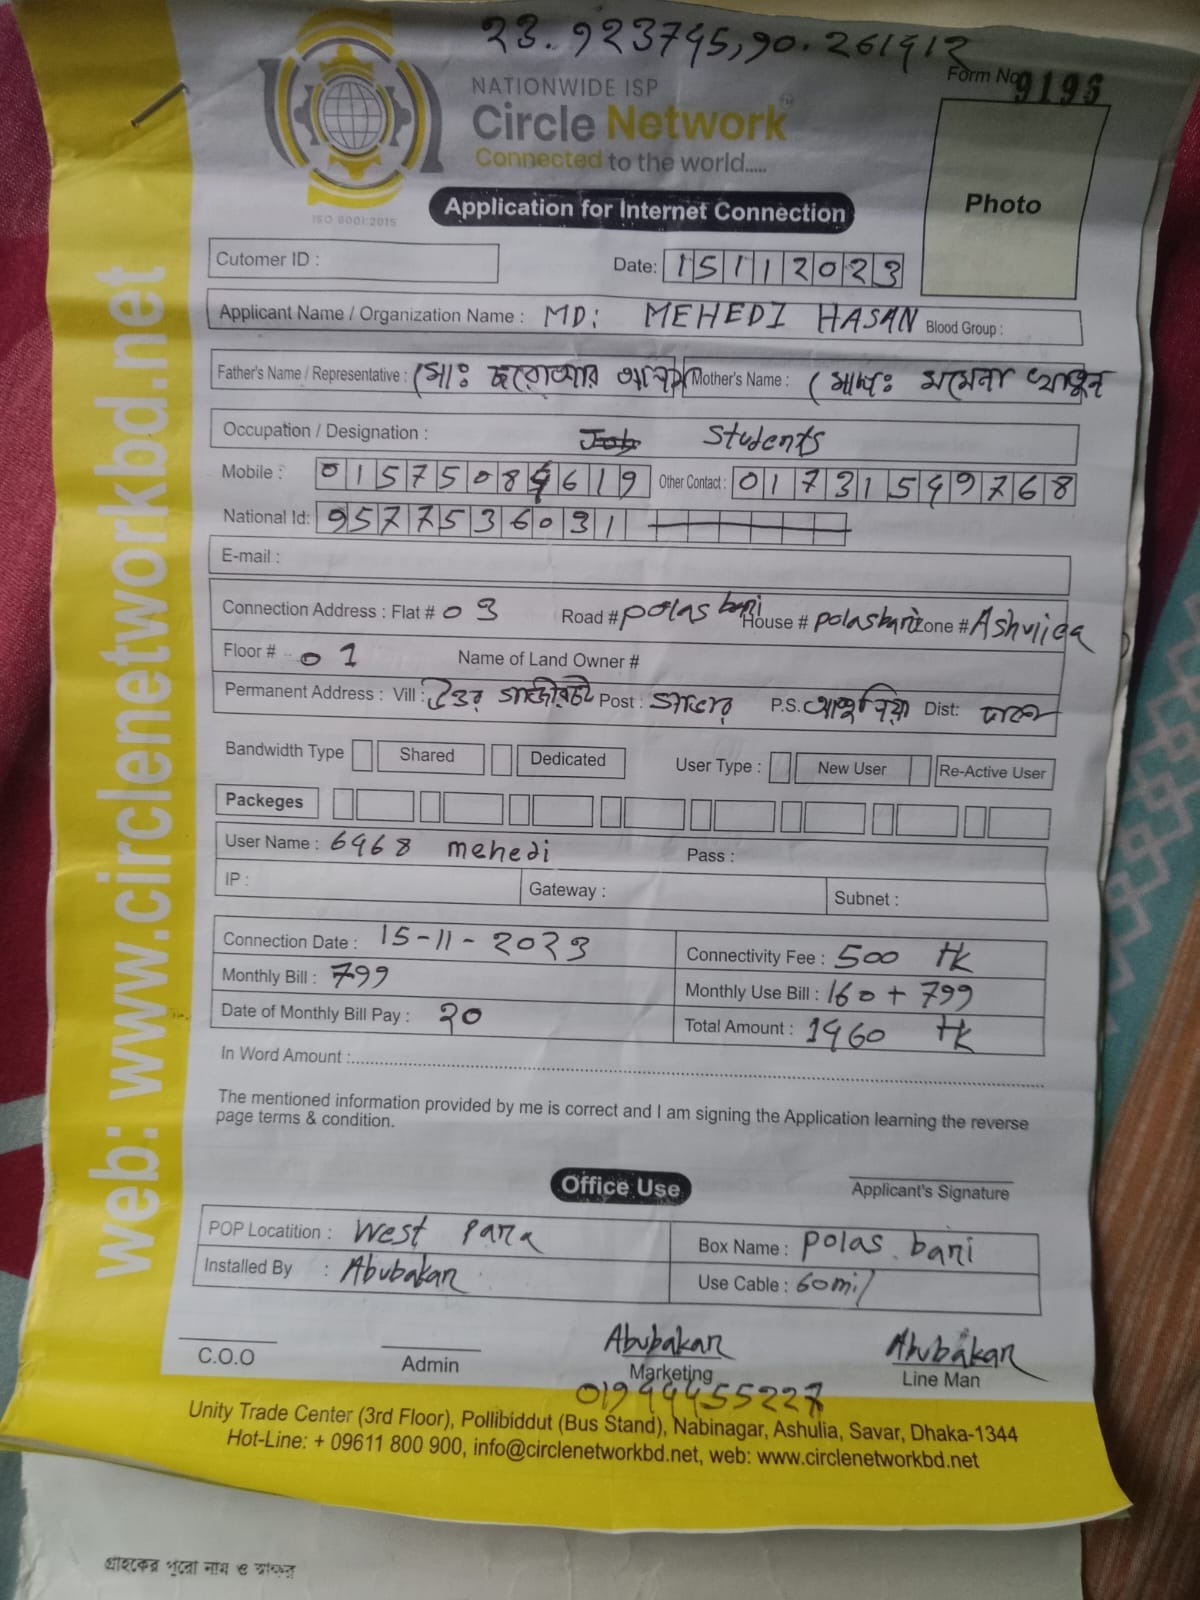 23.923745,90.261912
NATIONWIDE ISP
Form No 9196
Circle Network
Connected to the world.....
ISO 9001:2015
Application for Internet Connection
Photo
web: www.circlenetworkbd.net
Cutomer ID :
Date: 15112023
Applicant Name / Organization Name : MD: MEHEDI HASAN Blood Group :
Father's Name / Representative : মোঃ Mother's Name : মোছাঃ মমেনা খাতুন
Occupation / Designation : Job Students
Mobile : 0157508 619 Other Contact : 01731549768
National Id: 9577536031
E-mail :
Connection Address : Flat # 03 Road # polas bari House # polasbari Zone # Ashuliea
Floor # 01 Name of Land Owner #
Permanent Address : Vill : উত্তর গাজীরচট Post : সাভার P.S. আশুলিয়া Dist: ঢাকা
Bandwidth Type Shared Dedicated User Type : New User Re-Active User
Packeges
User Name : 6968 mehedi Pass :
IP : Gateway : Subnet :
Connection Date : 15-11-2023 Connectivity Fee : 500 tk
Monthly Bill : 799 Monthly Use Bill : 160 + 799
Date of Monthly Bill Pay : 20 Total Amount : 1460 tk
In Word Amount :
The mentioned information provided by me is correct and I am signing the Application learning the reverse
page terms & condition.
Office Use
Applicant's Signature
POP Locatition : West Para Box Name : Polas bari
Installed By : Abubakar Use Cable : 60mi/
Abubakar Abubakar
C.O.O Admin Marketing Line Man
01944455227
Unity Trade Center (3rd Floor), Pollibiddut (Bus Stand), Nabinagar, Ashulia, Savar, Dhaka-1344
Hot-Line: + 09611 800 900, info@circlenetworkbd.net, web: www.circlenetworkbd.net
গ্রাহকের পুরো নাম ও স্বাক্ষর